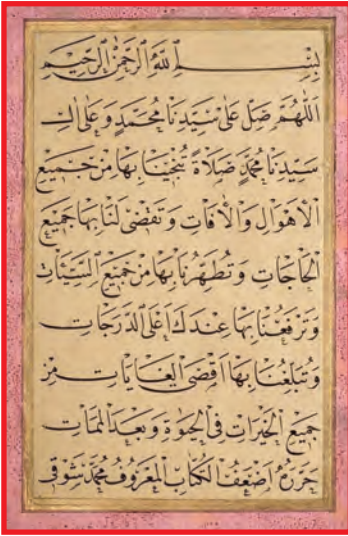 بِسْمِ اللّٰهِ الرَّحْمٰنِ الرَّحِيمِ
اَللّٰهُمَّ صَلِّ عَلٰى سَيِّدِنَا مُحَمَّدٍ وَعَلٰى اٰلِ
سَيِّدِنَا مُحَمَّدٍ صَلَاةً تُنْجِينَا بِهَا مِنْ جَمِيعِ
الْاَهْوَالِ وَالْاٰفَاتِ وَتَقْضِى لَنَا بِهَا جَمِيعَ
الْحَاجَاتِ وَتُطَهِّرُنَا بِهَا مِنْ جَمِيعِ السَّيِّئَاتِ
وَتَرْفَعُنَا بِهَا عِنْدَكَ اَعْلَى الدَّرَجَاتِ
وَتُبَلِّغُنَا بِهَا اَقْصَى الْغَايَاتِ مِنْ
جَمِيعِ الْخَيْرَاتِ فِى الْحَيٰوةِ وَبَعْدَ الْمَمَاتِ
حَرَّرَهُ اَضْعَفُ الْكُتَّابِ الْمَعْرُوفُ مُحَمَّدْ شَوْقِى